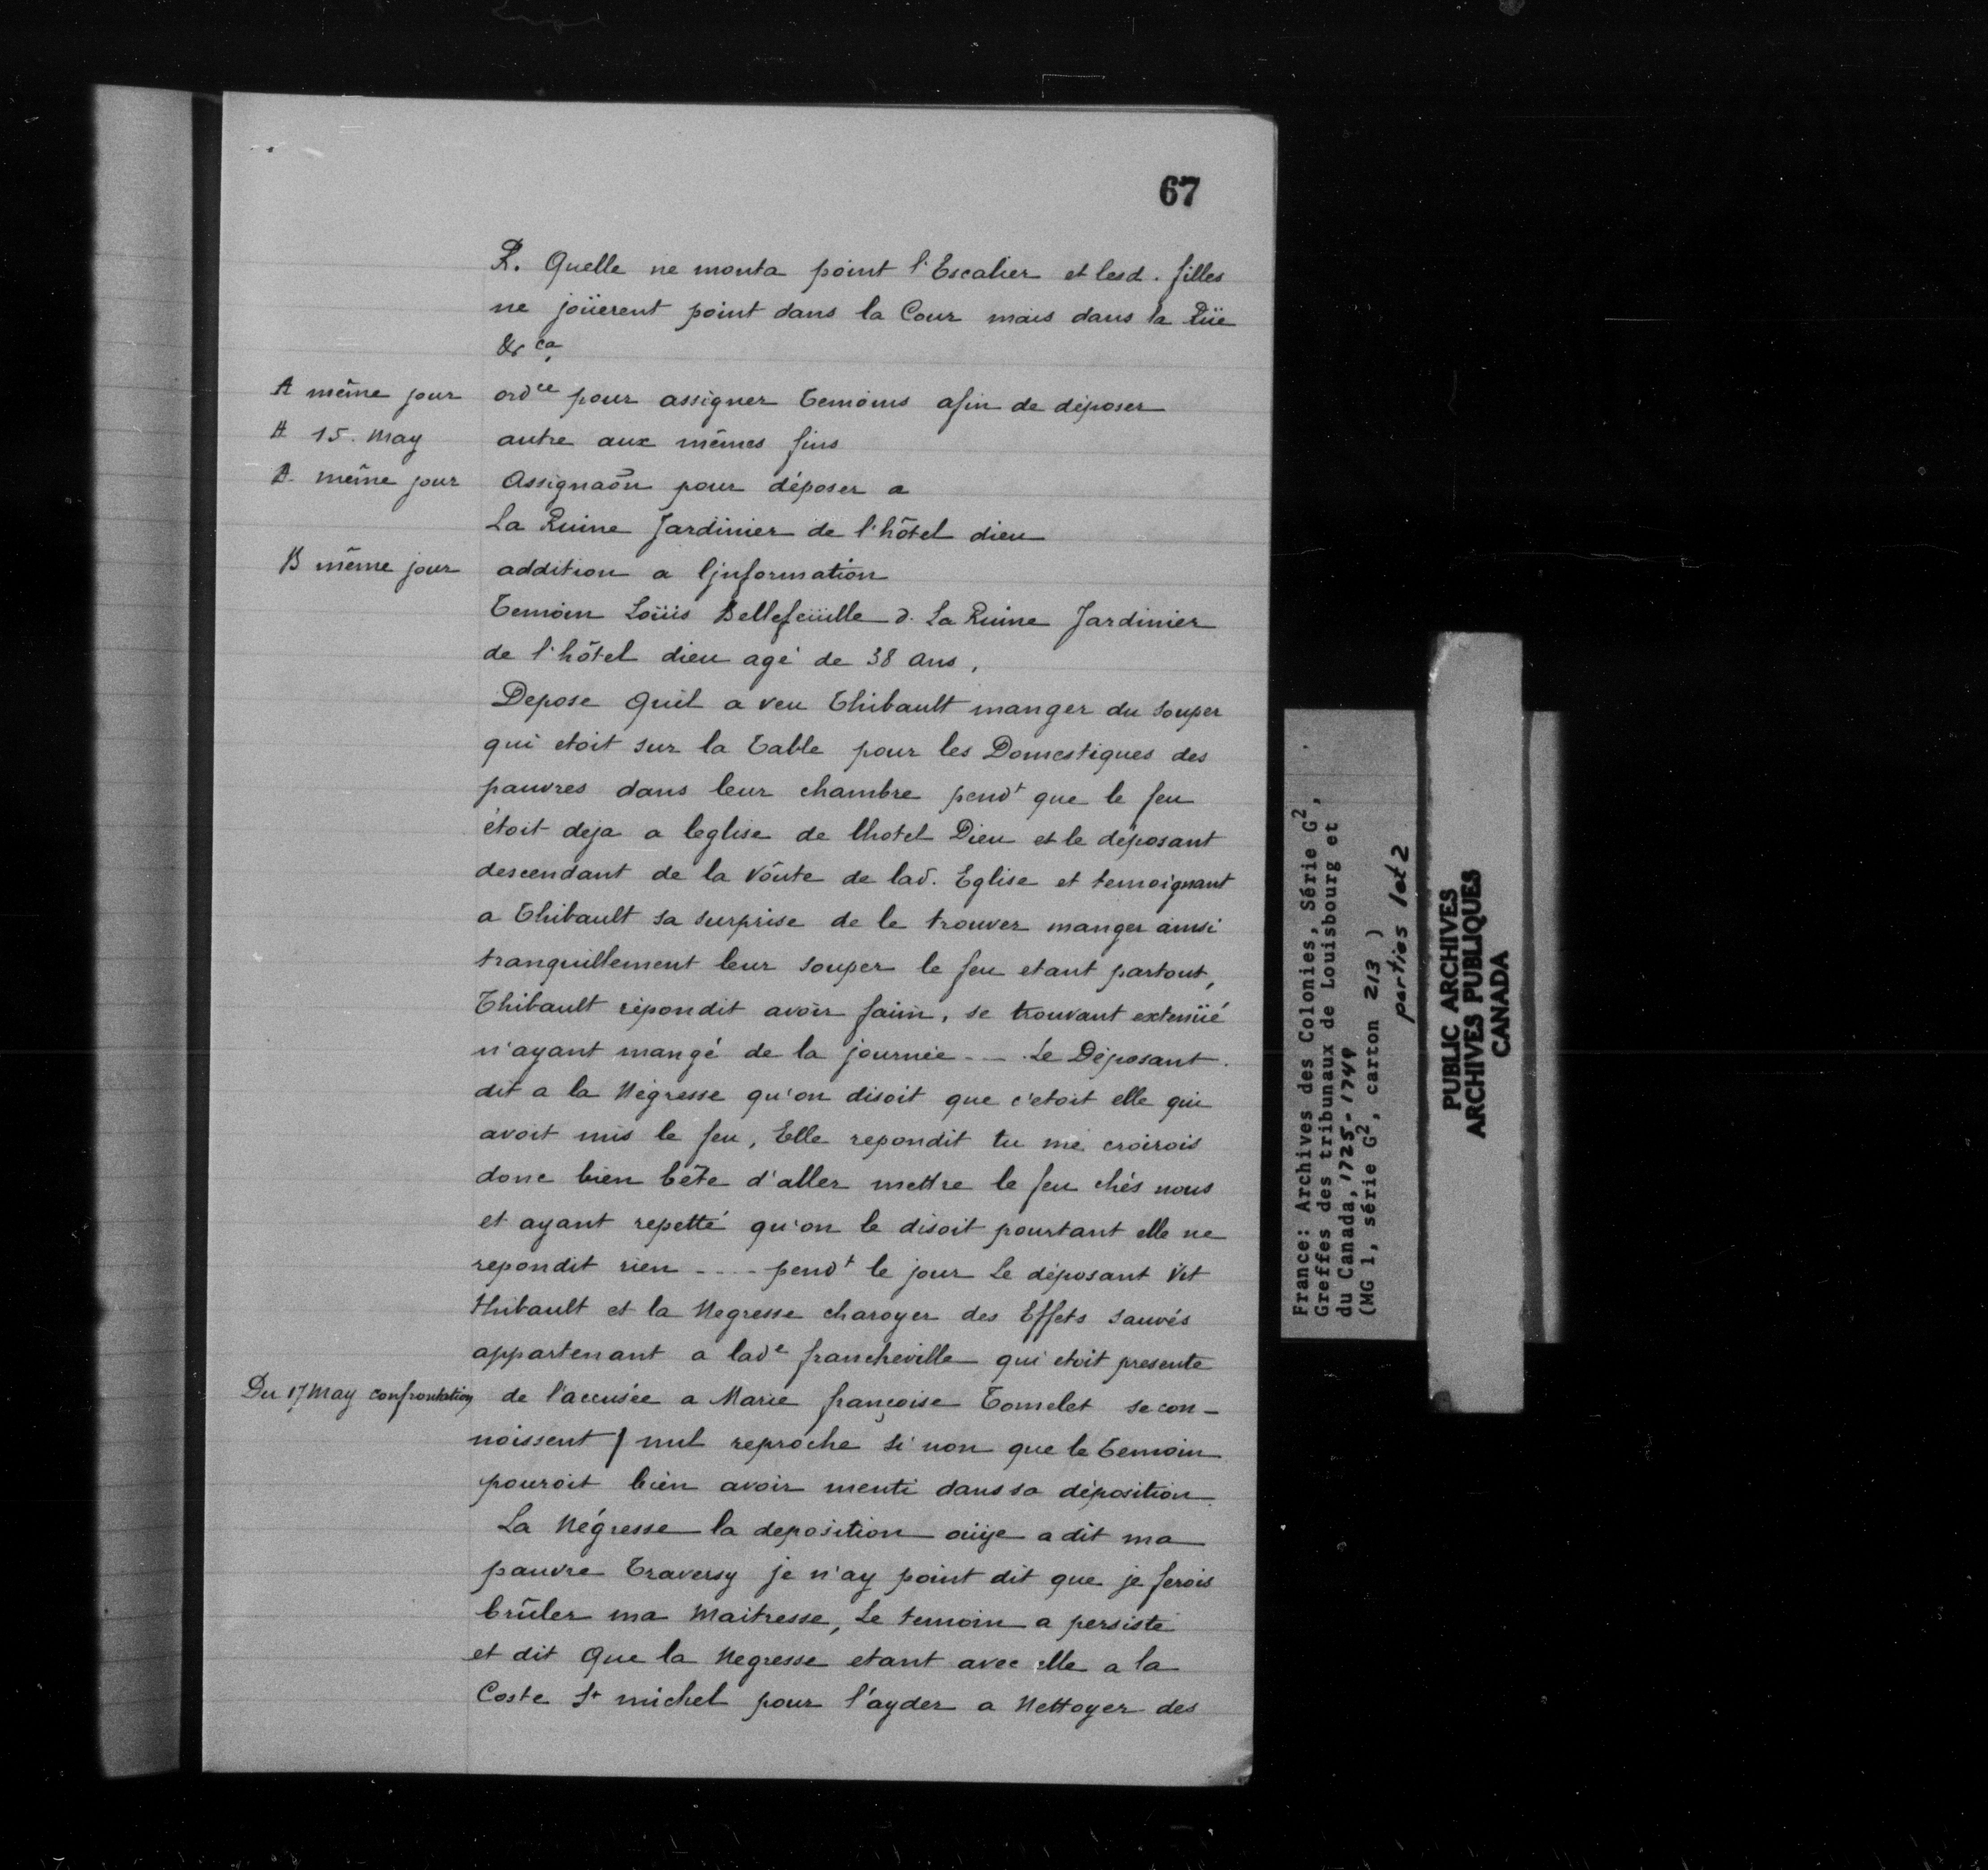 67
R. Quelle ne monta point l'Escalier et lesd. filles
ne joüerent point dans la Cour mais dans la Rüe
&ca
A même jour ordce pour assigner temoins afin de déposer
A 15. May autre aux mêmes fins
A même jour Assignaõn pour déposer a
La Ruine Jardinier de l'hôtel dieu
B même jour addition a l'jnformation
Temoin Loüis Bellefeüille d. La Ruine Jardinier
de l'hôtel dieu agé de 38 ans,
Depose Quil a veu Thibault manger du souper
qui etoit sur la Table pour les Domestiques des
pauvres dans leur chambre pendt que le feu
étoit deja a leglise de lhotel Dieu et le déposant
descendant de la voûte de lad. Eglise et temoignant
a Thibault sa surprise de le trouver manger ainsi
tranquillement leur souper le feu etant partout,
Thibault répondit avoir faim, se trouvant extenüé
n'ayant mangé de la journée -- Le Déposant
dit a la Négresse qu'on disoit que c'etoit elle qui
avoit mis le feu, Elle repondit tu me croirois
donc bien bête d'aller mettre le feu chés nous
et ayant repetté qu'on le disoit pourtant elle ne
repondit rien ---- pendt le jour Le déposant Vit
thibault et la Negresse charoyer des Effets sauvés
appartenant a lade francheville qui etoit presente
Du 17 May confrontation de l'accusée a Marie françoise Tomelet se con-
noissent / nul reproche si non que le Temoin
pouroit bien avoir menti dans sa déposition
La Négresse la deposition oüye a dit ma
pauvre Traversy je n'ay point dit que je ferois
brûler ma Maitresse, Le temoin a persisté
et dit Que la Negresse etant avec elle a la
Coste St michel pour l'ayder a Nettoyer des
France: Archives des Colonies, Série G2,
Greffes des tribunaux de Louisbourg et
du Canada, 1725-1749
(MG 1, série G2, carton 213 )
parties 1et 2
PUBLIC ARCHIVES
ARCHIVES PUBLIQUES
CANADA